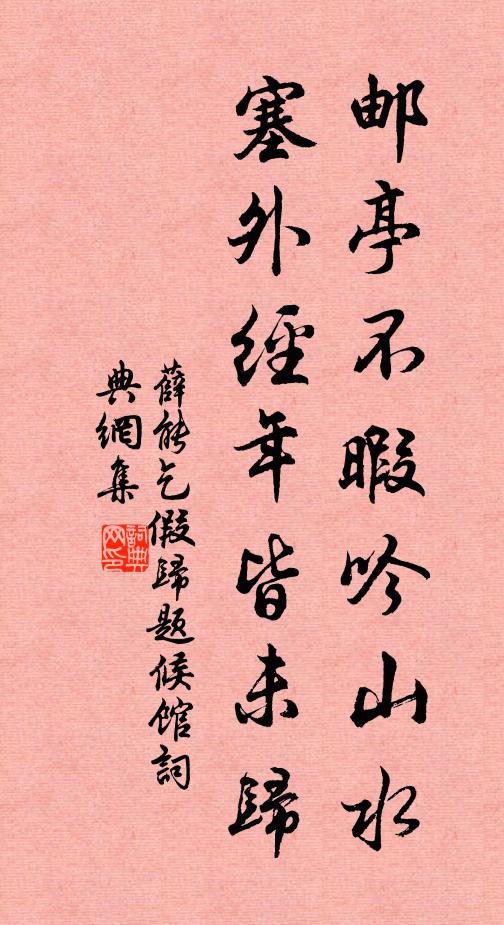 邮亭不暇吟山水
塞外經年皆未歸
薛能乞假歸題候館詞
典網集
詞典网印